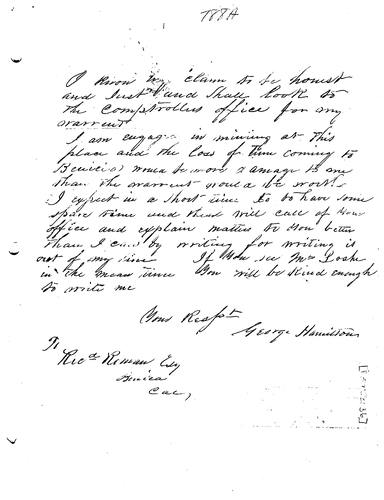 788A
I know my claim to be honest
and Just and Shall look to
the Comptrollers office for my
warrent
I am engage in mining at This
place and the loss of time coming to
Benicia would be more damage to me
than the warrent would be worth
I expect in a short time to to have some
spare time and then will call at your
office and explain matters to you better
than I can by writing for writing is
out of my line If You see Mr
in the mean time You will be Kind enough
to write me
Your Respt
George Hamilton
To
Ricd Roman Esq
Benica
Cal,